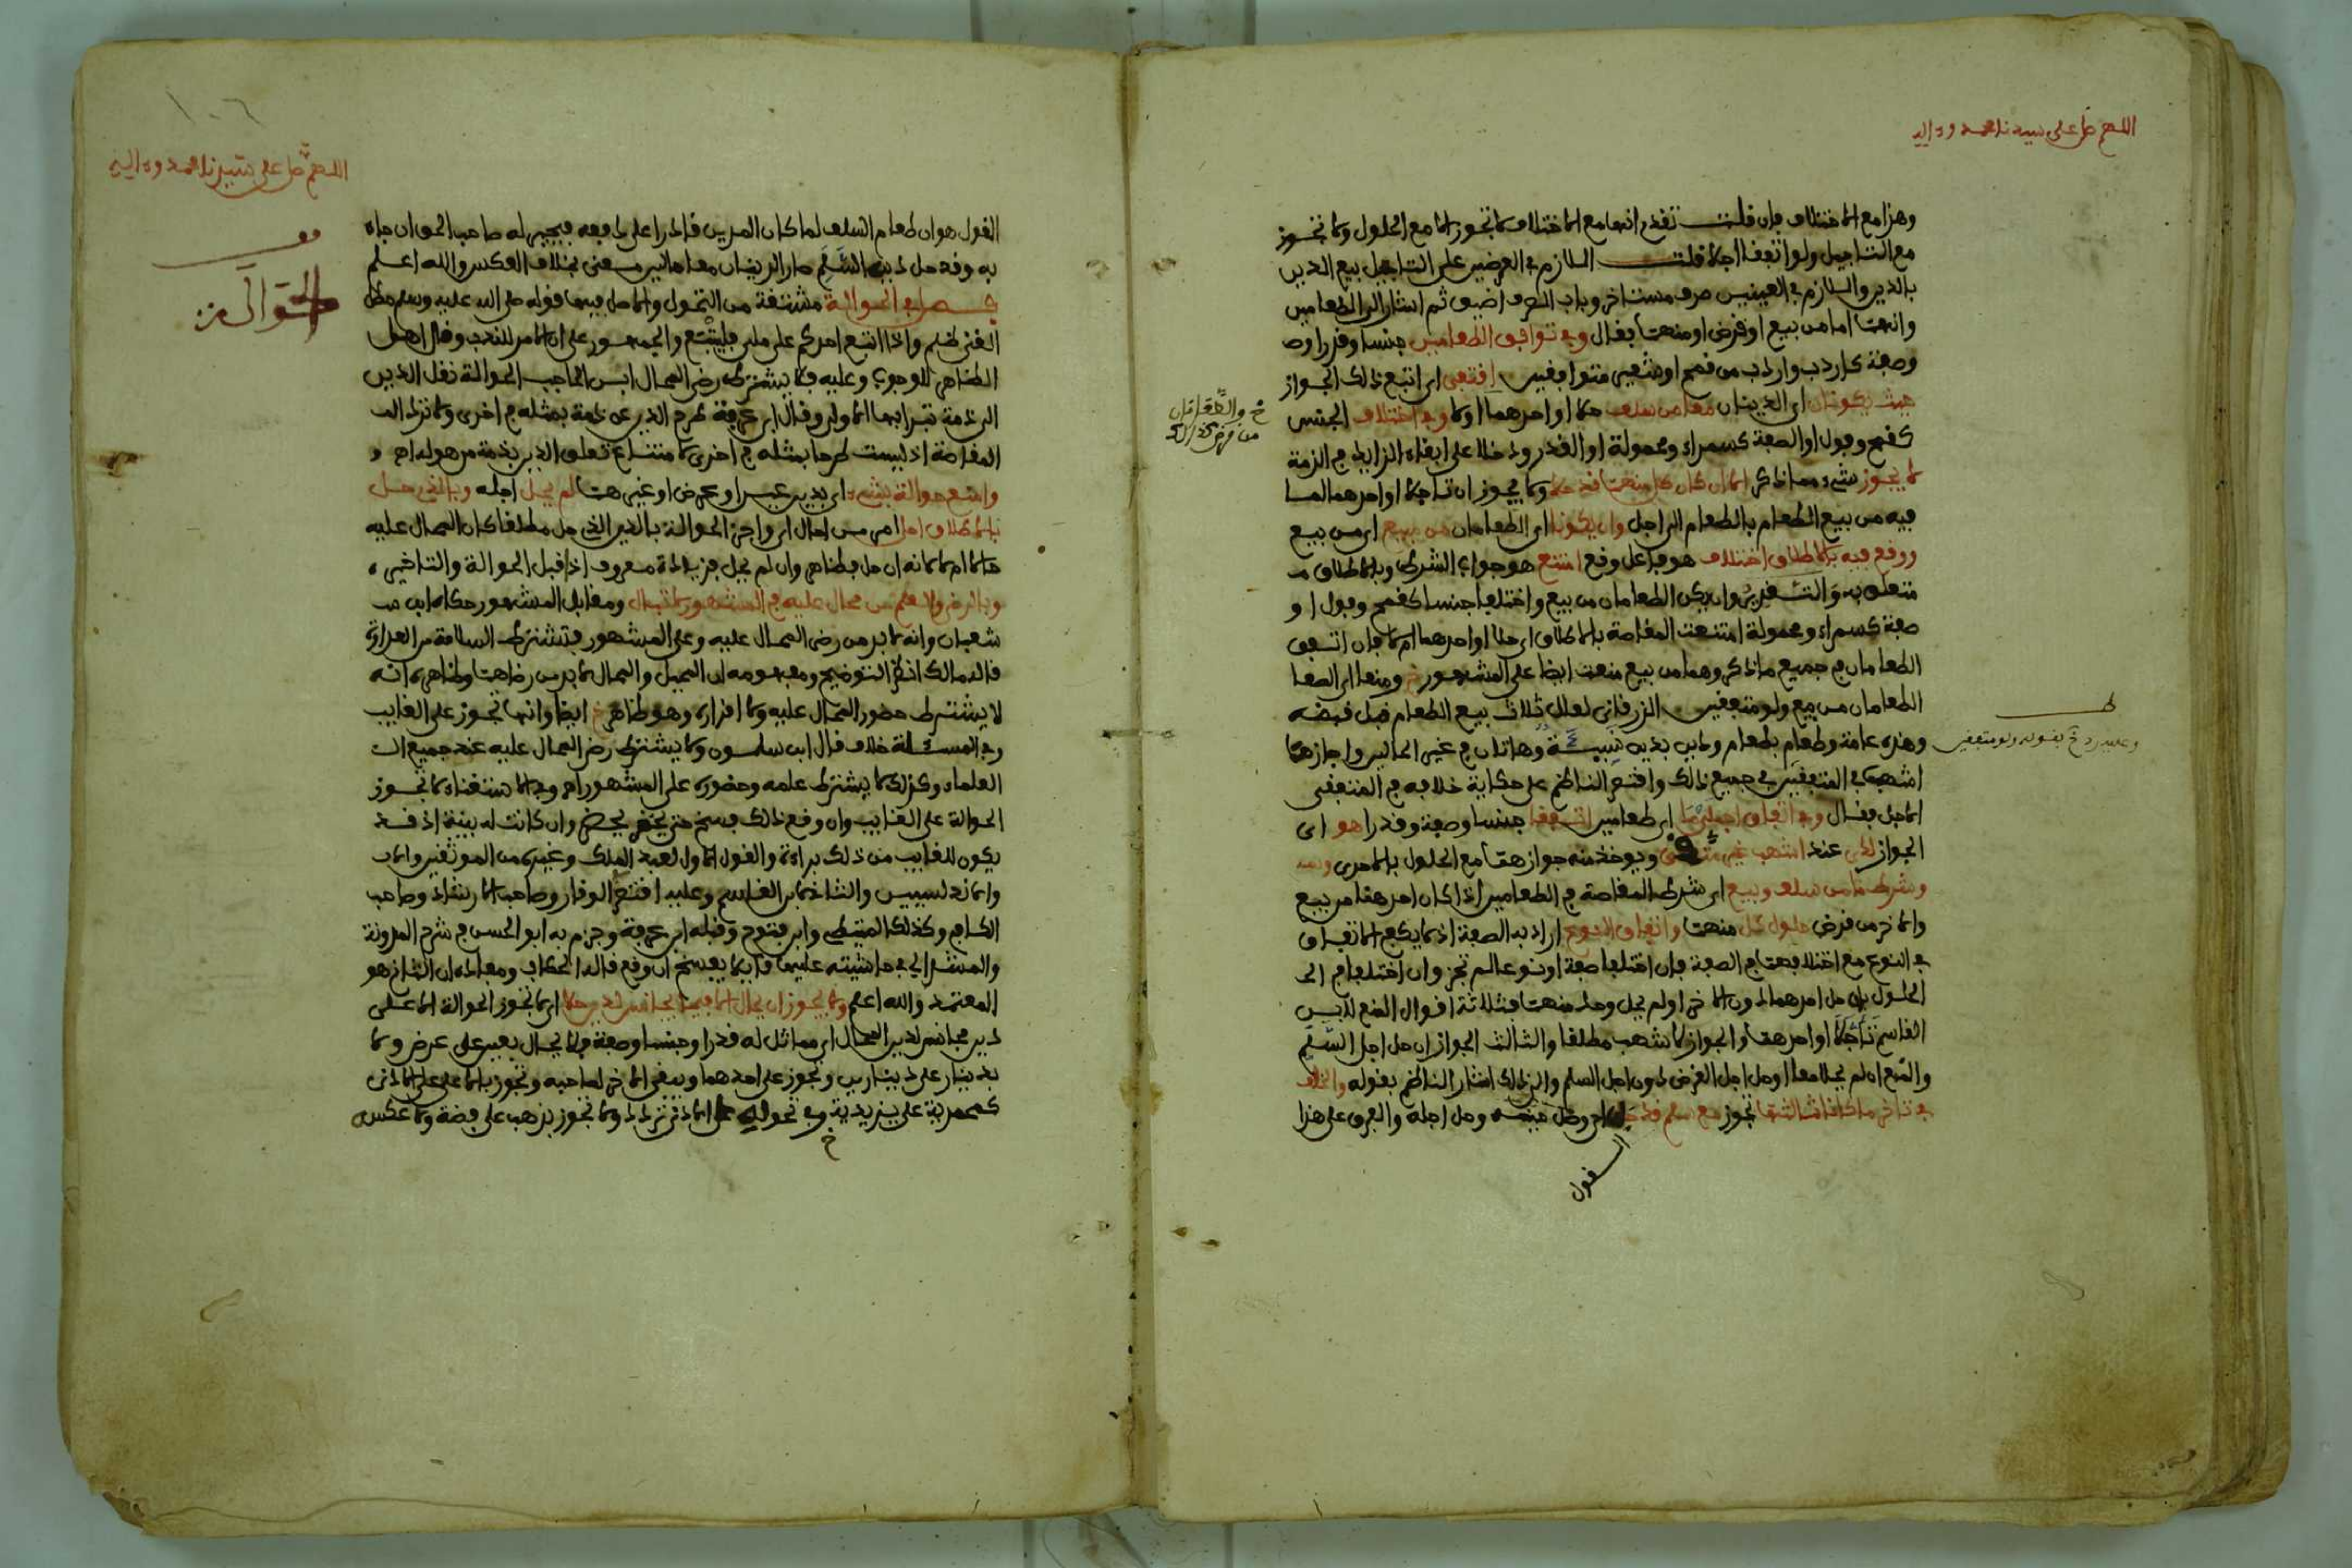 اللهم صل على سيدنا محمد وءاله
وهذا مع الاختلاف فإن قلت تقدم انها مع الاختلاف لا تجوز الا مع الحلول ولا تجوز
مع التاجيل ولو اتفقا اجلا قلت اللازم في العرضين على التاجيل بيع الدين
بالدين واللازم في العينين صرف مستاخر وباب الصرف اضيق ثم اشار الى الطعامين
وانهما اما من بيع او قرض او منهما بقال وفي توافق الطعامين جنسا وقدرا وص
وصفة كاردب واردب من قمح او شعير متوافقين اقتفي اي اتبع ذالك الجواز
حيث يكونان اي الدينان معا من سلف حلا او احدهما او لا وفي اختلاف الجنس
كقمح وفول او الصفة كسمراء ومحمولة او القدر ودخلا على ابقاء الزايد في الذمة
لا يجوز شيء مما ذكر الا ان كان كل منهما قد حلا ولا يجوز ان تاجلا او احدهما لما
فيه من بيع الطعام بالطعام الى اجل وان يكونا اي الطعامان من مبيع اي من بيع
ووقع فيه بالاطلاق اختلاف هو فاعل وقع امتنع هو جواب الشرط وبالاطلاق م
متعلق به والتقدير وان يكن الطعامان من بيع واختلفا جنسا كقمح وفول او
صفة كسمراء ومحمولة امتنعت المقاصة بالاطلاق اي حلا او احدهما ام لا فإن اتفق
الطعامان في جميع ما ذكر وهما من بيع منعت ايضا على المشهور خ ومنعا اي الصفا
الطعامان من بيع ولو متفقين الزرقاني لعلل ثلاث بيع الطعام قبل قبضه
وهذه عامة وطعام بطعام ودين بدين نسيئة وهاتان في غير الحالين واجازها
اشهب في المتفقين في جميع ذالك واقتصر الناظم على حكاية خلافه في المتفقي
الاجل فقال وفي اتفاق اجلي ما اي طعامين اتفقا جنسا وصفة وقدرا هو اي
الجواز عند اشهب ويوخذ منه جوازها مع الحلول بالاحرى
وشرط ما من سلف وبيع اي شرط المقاصة في الطعامين اذا كان احدهما من بيع
والاخر من قرض حلول كل منهما واتفاق النوع اراد به الصفة اذ لا يكفي الاتفاق
في النوع مع اختلافهما في الصفة فإن اختلفا صفة او نوعا لم تجز وان اختلفا في الح
الحلول بان حل احدهما دون الاخر او لم يحل واحد منهما فثلاثة اقوال المنع لابن
القاسم تاجلا او احدهما والجواز لاشهب مطلقا والثالث الجواز ان حل اجل السلم
والمنع ان لم يحلا معا او حل اجل القرض دون اجل السلم والى ذلك اشار الناظم بقوله والخلف
في تاخر ما كان ثالثها تجوز مع سلم قد حل وحل اجله والفرق على هذا
القول
خ والمتفقان
من قرض كذلك
ط
وعليه رد خ بقوله ولو متفقين
١٠٦
اللهم صل على سيدنا محمد وءاله
قف
الحوالة
القول هو ان طعام السلف لما كان المدين قادرا على دفعه فيجبر له صاحب الحق ان جاه
به وقد حل دين السلم صار الدينان معا حالين معنى بخلاف العكس والله اعلم
فصل في الحوالة مشتقة من التحول والاصل فيها قوله صلى الله عليه وسلم مطل
الغني ظلم واذا اتبع احدكم على ملي فليتبع والجمهور على ان الامر للندب وقال اهل
الظاهر للوجوب وعليه فلا يشترط رضى المحال ابن الحاجب الحوالة نقل الدين
الى ذمة تبرا بها الاولى وقال ابن عرفة طرح الدين عن ذمة بمثله في اخرى ولا ترد الم
المقاصة اذ ليست طرحا بمثله في اخرى لامتناع تعلق الدين بذمة من هو له اهـ و
وامنع حوالة بشيء اي بدين عين او عرض او غيرهما لم يحل اجله وبالذي حل
بالاطلاق احل امر من احال اي واجز الحوالة بالدين الذي حل مطلقا كان المحال عليه
حالا ام لا لانه ان حل فظاهر وان لم يحل فزيادة معروف اذا قبل الحوالة والتاخير
وبالرضى والعلم من محال عليه في المشهور لا تبال ومقابل المشهور حكاه ابن ش
شعبان وانه لا بد من رضى المحال عليه وعلى المشهور فتشترط السلامة من العداوة
قاله مالك انظر التوضيح ومفهومه ان المحيل والمحال لا بد من رضاهما وظاهره انه
لا يشترط حضور المحال عليه ولا اقراره وهو ظاهر خ ايضا وانها تجوز على الغايب
وفي المسئلة خلاف قال ابن سلمون ولا يشترط رضى المحال عليه عند جميع ال
العلماء وكذلك لا يشترط علمه وحضوره على المشهور اهـ وفي الاستغناء لا تجوز
الحوالة على الغايب وان وقع ذالك فسخ حتى يحضر وان كانت له بينة اذ قد
يكون للغايب من ذلك براءة والقول الاول لعبد الملك وغيره من الموثقين واب
والاندلسيين والثاني لابن القاسم وعليه اقتصر الوقار وصاحب الارشاد وصاحب
الكافي وكذلك المتيطي وابن فتوح وقبله ابن عرفة وجزم به ابو الحسن في شرح المدونة
والمشدالي في حاشيته عليها قايلا يفسخ ان وقع قاله الحطاب ومفاده ان الثاني هو
المعتمد والله اعلم ولا يجوز ان يحال الا فيما يجانس لدين حلا اي لا تجوز الحوالة الا على
دين مجانس لدين المحال اي مماثل له قدرا وجنسا وصفة فلا يحال بعين على عرض ولا
بدينار على دينارين وتجوز على احدهما ويبقى الاخر لصاحبه وتجوز بالاعلى على الادنى
كمحمدية على يزيدية وفي تحوله على الادنى تردد ولا تجوز بذهب على فضة ولا عكسه
خ